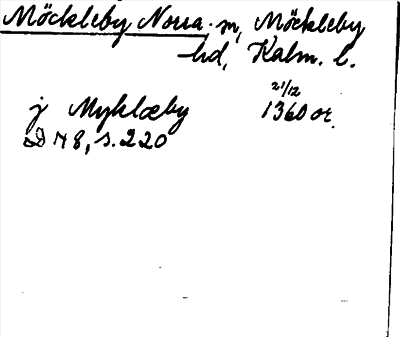 Möckleby Norra. sn, Möckleby
hd, Kalm. l.
21/12
j Myklæby 1360 or.
SD N 8, s. 220